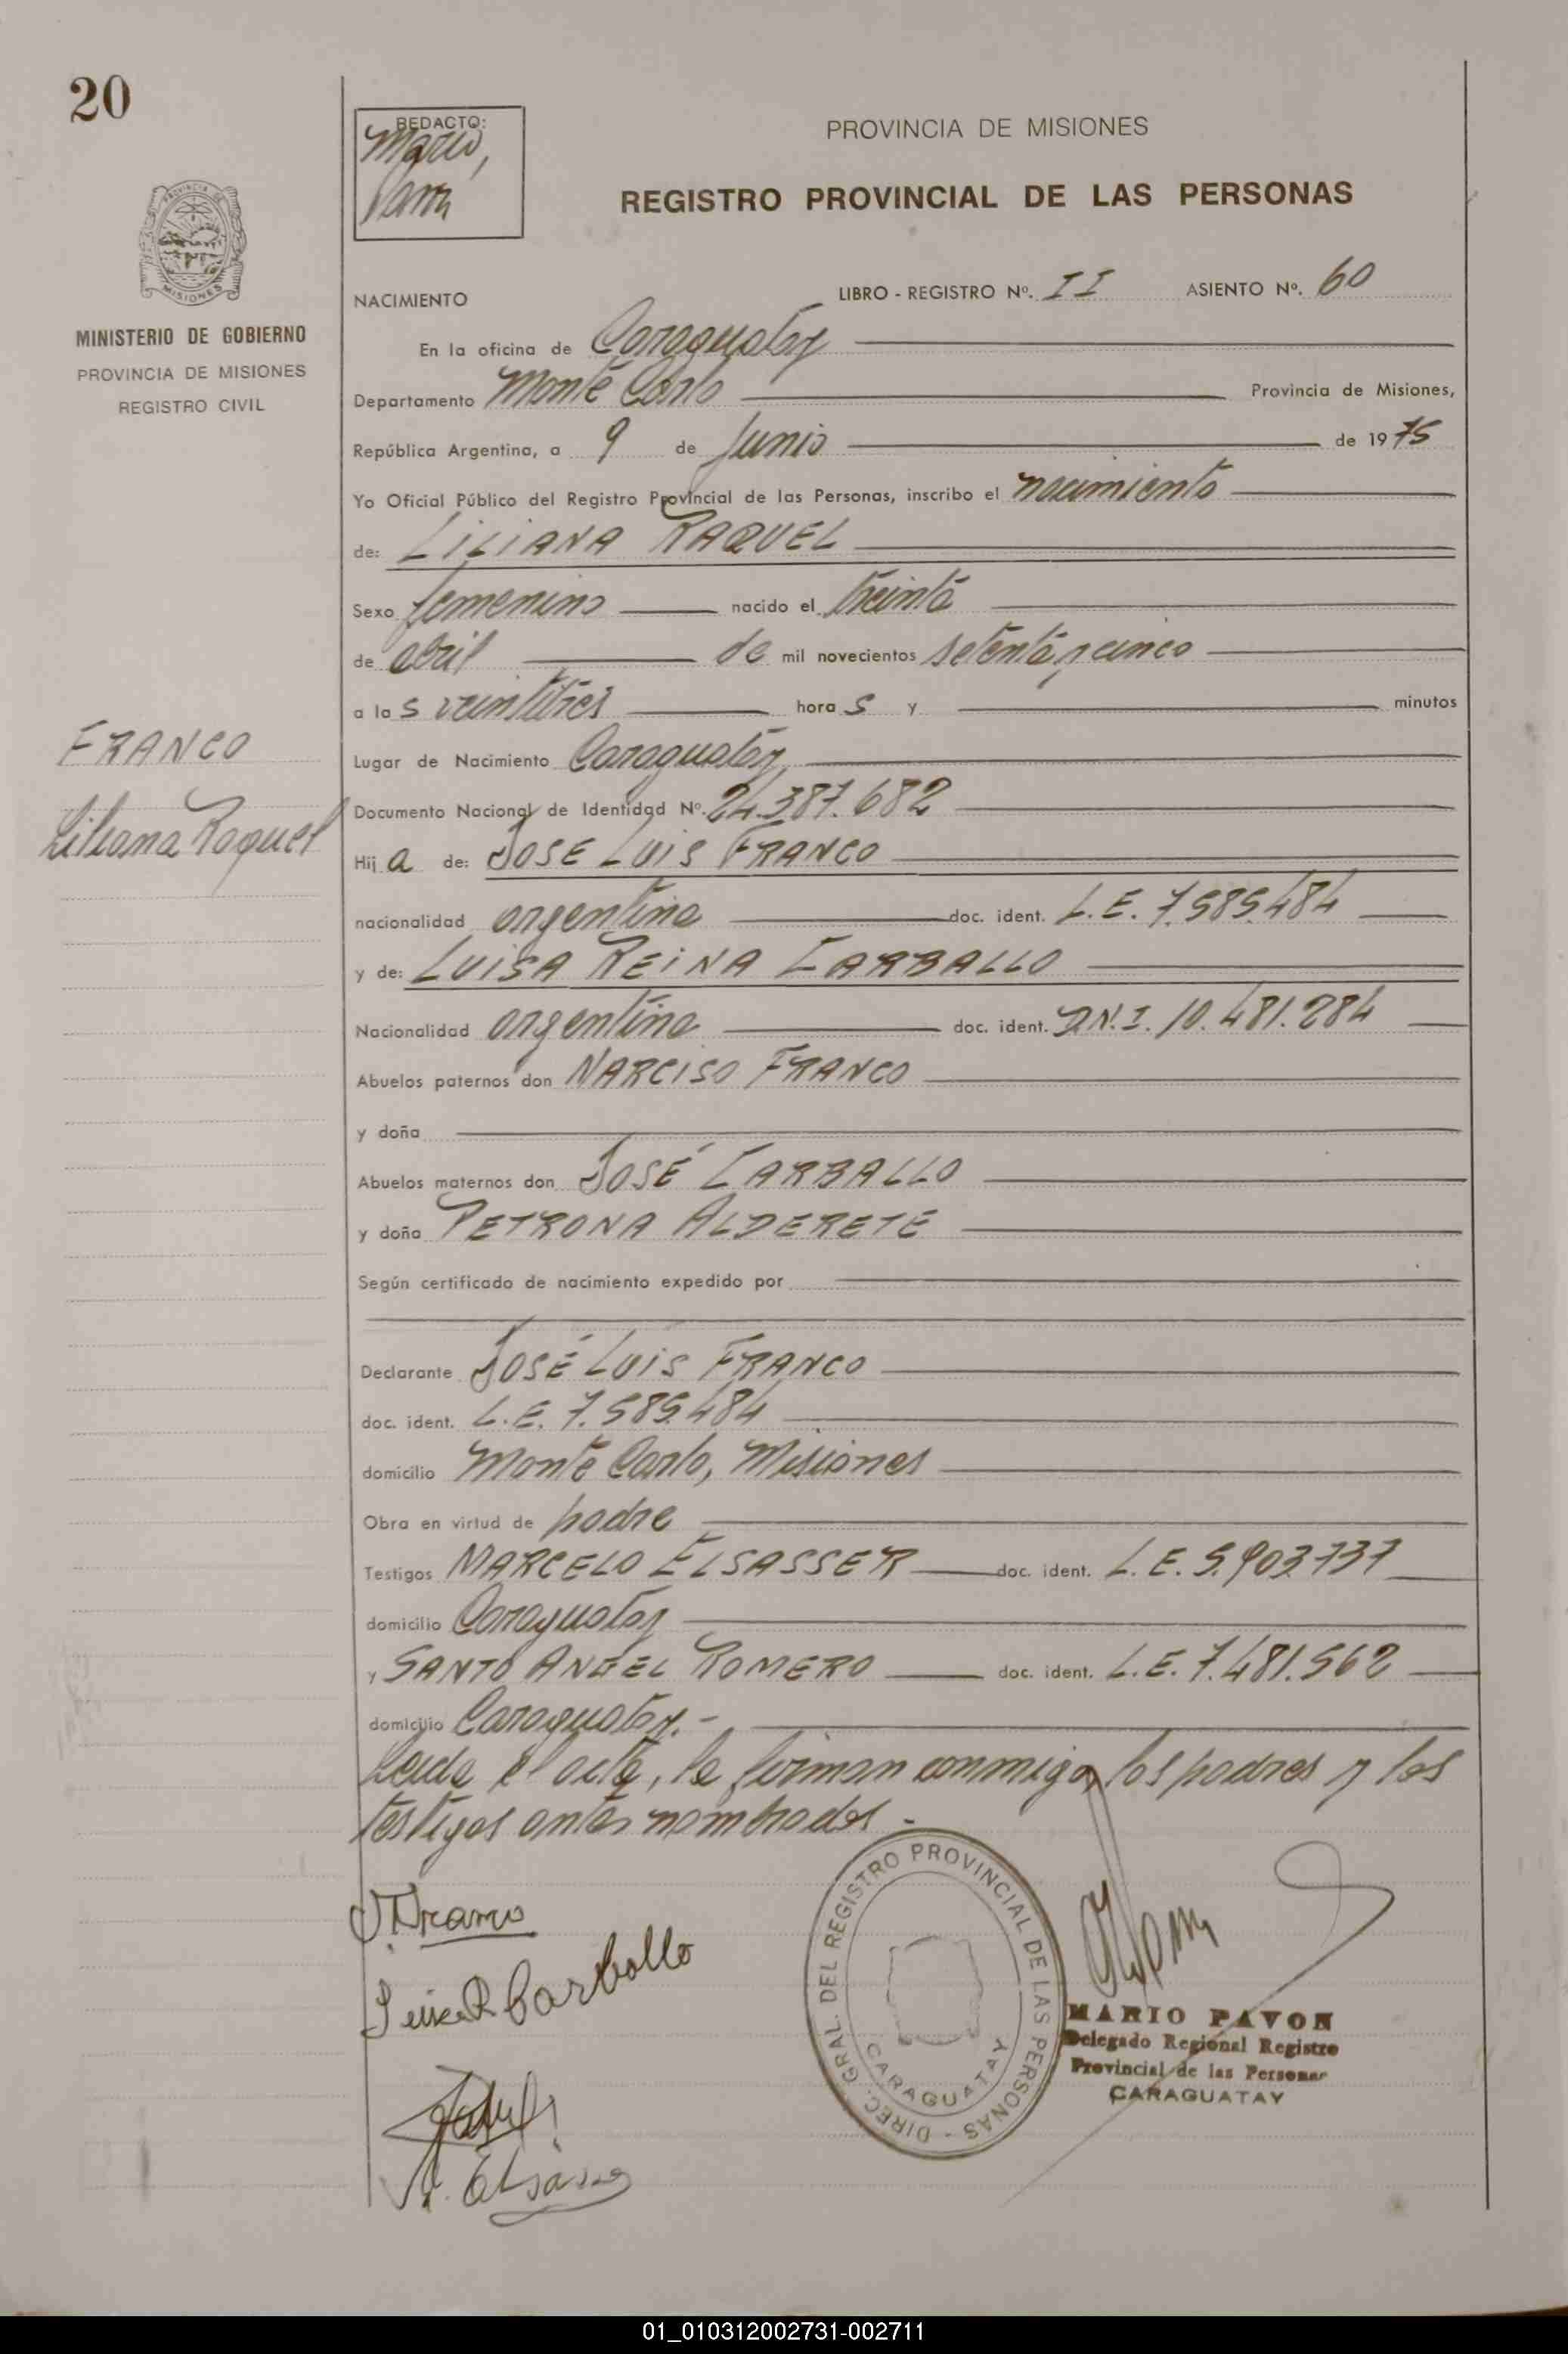 20
REDACTO:
Mario,
PROVINCIA DE MISIONES
REGISTRO PROVINCIAL DE LAS PERSONAS
MISIONES
MINISTERIO DE GOBIERNO
PROVINCIA DE MISIONES
REGISTRO CIVIL
NACIMIENTO LIBRO - REGISTRO Nº. II ASIENTO Nº. 60
En la oficina de Caraguatay
Departamento Monte Carlo Provincia de Misiones,
República Argentina, a 9 de Junio de 1975
Yo Oficial Público del Registro Provincial de las Personas, inscribo el nacimiento
de: LILIANA RAQUEL
Sexo femenino nacido el treinta
de abril de mil novecientos setenta y cinco
a las veintitres horas y minutos
FRANCO
Liliana Raquel
Lugar de Nacimiento Caraguatay
Documento Nacional de Identidad Nº. 24.387.682
Hija de: JOSE LUIS FRANCO
nacionalidad argentina doc. ident. L.E. 7.585.484
y de: LUISA REINA CARBALLO
Nacionalidad argentina doc. ident. D.N.I. 10.481.284
Abuelos paternos don NARCISO FRANCO
y doña
Abuelos maternos don JOSÉ CARBALLO
y doña PETRONA ALDERETE
Según certificado de nacimiento expedido por
Declarante JOSÉ LUIS FRANCO
doc. ident. L.E. 7.585.484
domicilio Monte Carlo, Misiones
Obra en virtud de padre
Testigos MARCELO ELSASSER doc. ident. L.E. 5.903.737
domicilio Caraguatay
y SANTO ANGEL ROMERO doc. ident. L.E. 7.481.562
domicilio Caraguatay.-
Leida el acta, la firman conmigo, los padres y los
testigos antes nombrados.-
JFranco
Luisa R Carballo
DIREC. GRAL. DEL REGISTRO PROVINCIAL DE LAS PERSONAS -
CARAGUATAY
MARIO PAVON
Delegado Regional Registro
Provincial de las Personas
CARAGUATAY
01_010312002731-002711